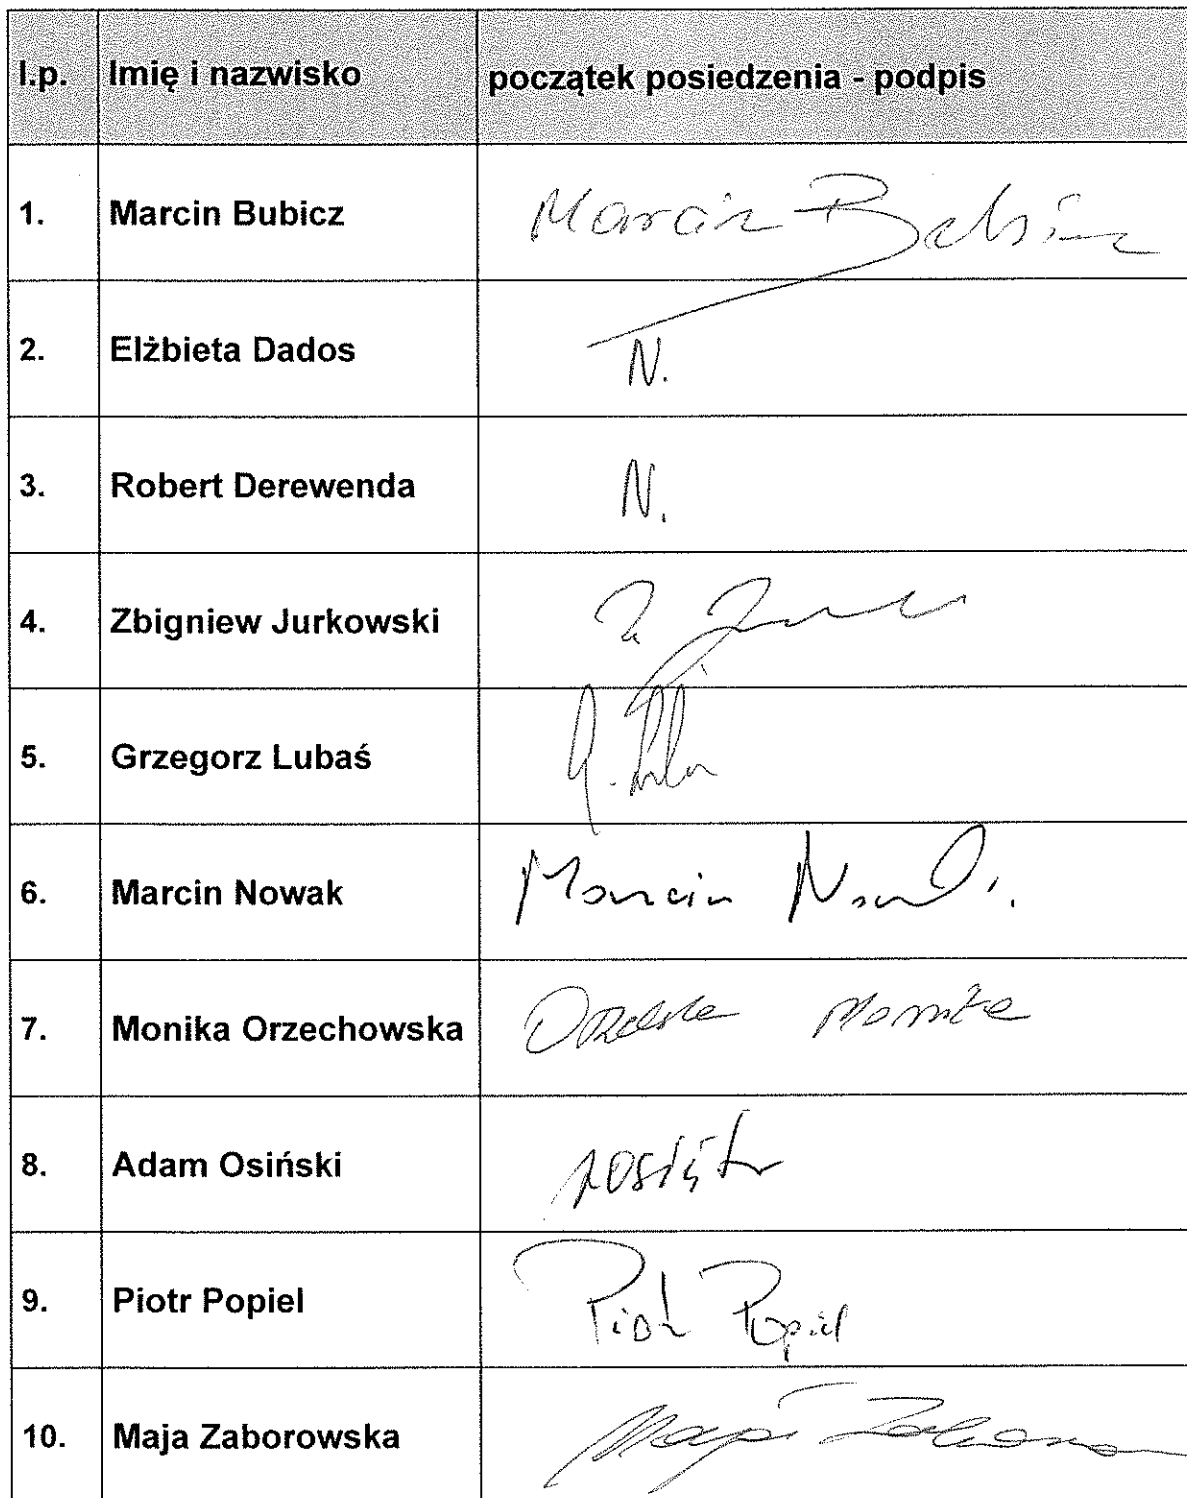 l.p. Imię i nazwisko początek posiedzenia - podpis
1. Marcin Bubicz Marcin Bubicz
2. Elżbieta Dados N.
3. Robert Derewenda N.
4. Zbigniew Jurkowski
5. Grzegorz Lubaś
6. Marcin Nowak Marcin Nowak
7. Monika Orzechowska Monika
8. Adam Osiński
9. Piotr Popiel Piotr Popiel
10. Maja Zaborowska Maja